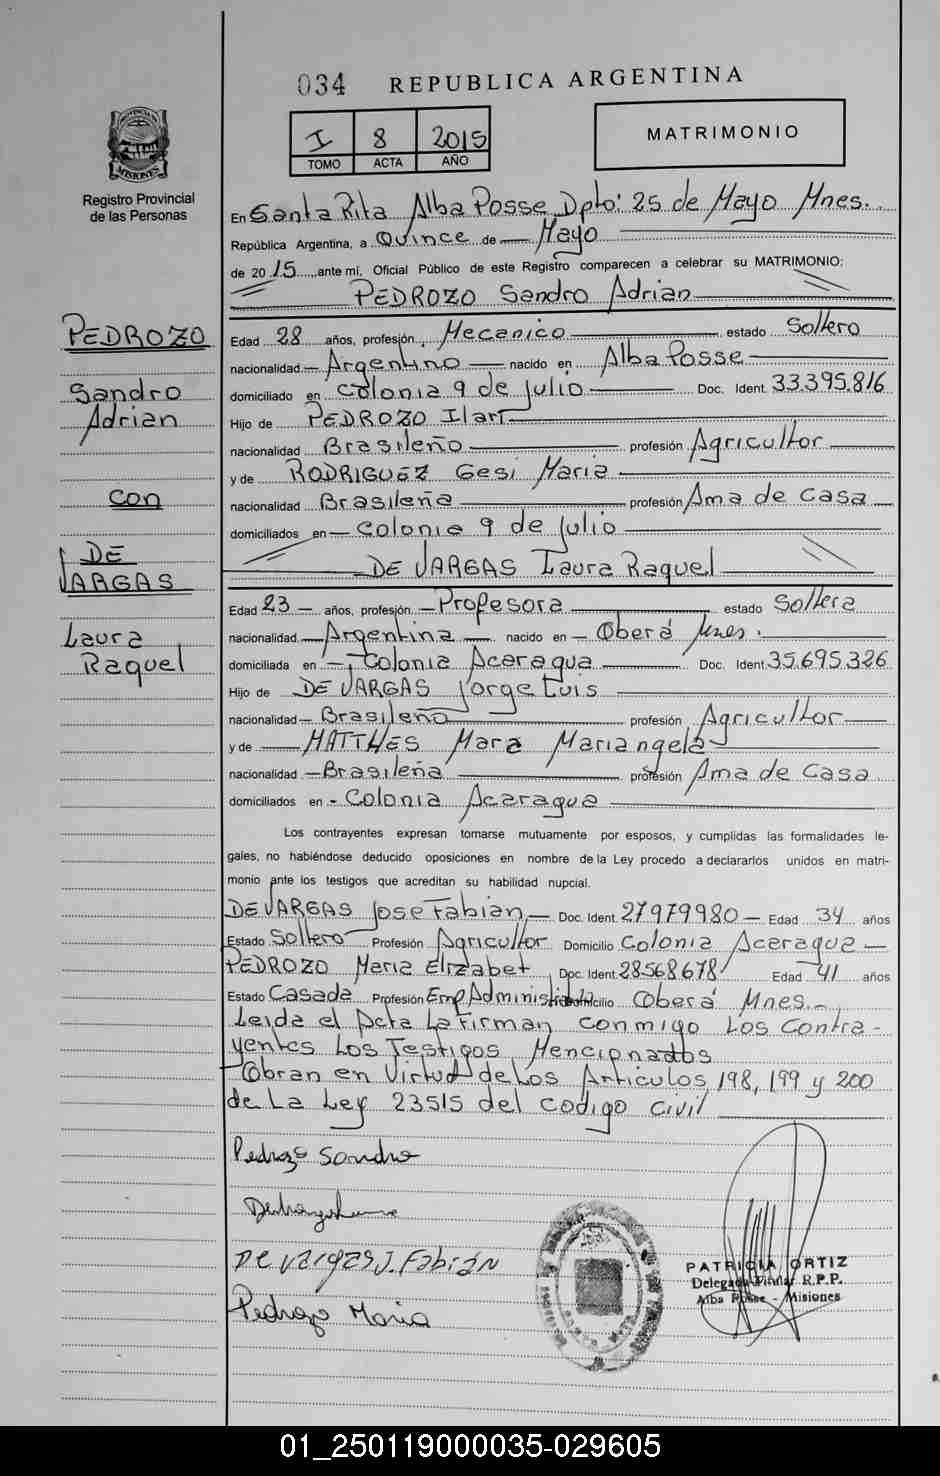 034 REPUBLICA ARGENTINA
I 8 2015
TOMO ACTA AÑO
MATRIMONIO
PROVINCIA DE MISIONES
Registro Provincial
de las Personas
En Santa Rita Alba Posse Dpto: 25 de Mayo Mnes.
República Argentina, a Quince de Mayo
de 2015, ante mí, Oficial Público de este Registro comparecen a celebrar su MATRIMONIO:
PEDROZO Sandro Adrian
PEDROZO
Sandro
Adrian
con
DE
VARGAS
Laura
Raquel
Edad 28 años, profesión, Mecanico estado Soltero
nacionalidad Argentino nacido en Alba Posse
domiciliado en Colonia 9 de Julio Doc. Ident. 33.395.816
Hijo de PEDROZO Ilari
nacionalidad Brasileño profesión Agricultor
y de RODRIGUEZ Gesi Maria
nacionalidad Brasileña profesión Ama de Casa
domiciliados en Colonia 9 de Julio
DE VARGAS Laura Raquel
Edad 23 años, profesión, Profesora estado Soltera
nacionalidad Argentina nacido en Oberá Mnes.
domiciliada en Colonia Acaragua Doc. Ident. 35.695.326
Hijo de DE VARGAS Jorge Luis
nacionalidad Brasileño profesión Agricultor
y de MATTHES Mara Mariangela
nacionalidad Brasileña profesión Ama de Casa
domiciliados en Colonia Acaragua
Los contrayentes expresan tomarse mutuamente por esposos, y cumplidas las formalidades le-
gales, no habiéndose deducido oposiciones en nombre de la Ley procedo a declararlos unidos en matri-
monio ante los testigos que acreditan su habilidad nupcial.
DE VARGAS Jose Fabian Doc. Ident. 27979980 Edad 34 años
Estado Soltero Profesión Agricultor Domicilio Colonia Acaragua
PEDROZO Maria Elizabet Doc. Ident. 28568678 Edad 41 años
Estado Casada Profesión Emp Administ Domicilio Oberá Mnes.
Leida el Acta La Firman conmigo Los Contra-
yentes Los Testigos Mencionados
Obran en Virtud de Los Articulos 198, 199 y 200
de La Ley 23515 del codigo civil
Pedrozo Sandro
De Vargas J. Fabián
Pedrozo Maria
PATRICIA ORTIZ
Delegada Titular R.P.P.
Alba Posse - Misiones
01_250119000035-029605